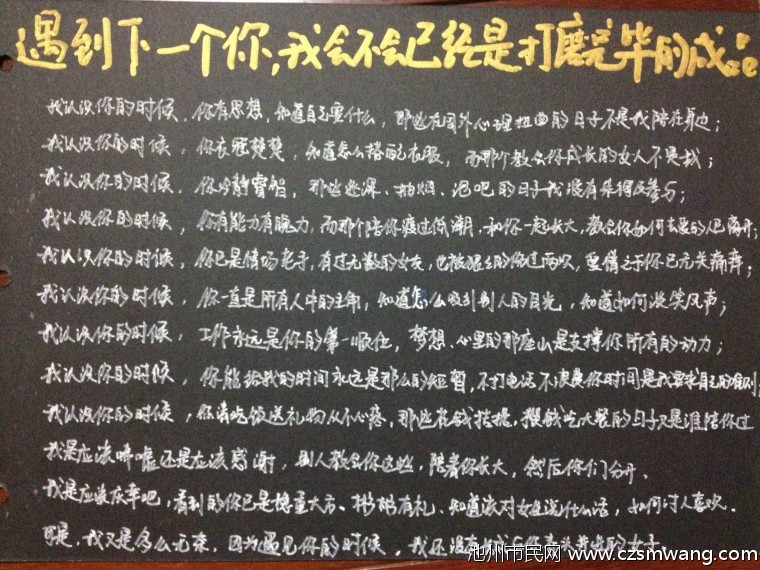 遇到下一个你,我会不会已经是打磨完毕的成品
我认识你的时候，你有思想，知道自己要什么，那些在国外心理扭曲的日子不是我陪在身边；
我认识你的时候，你衣冠楚楚，知道怎么搭配衣服，而那个教会你成长的女人不是我；
我认识你的时候，你冷静睿智，那些逃课、抽烟、泡吧的日子我没有来得及参与；
我认识你的时候，你有能力有魄力，而那个陪你渡过低潮，和你一起长大，教会你如何去爱的人已离开；
我认识你的时候，你已是情场老手，有过无数的女友，也被狠狠的伤过两次，爱情之于你已无关痛痒；
我认识你的时候，你一直是所有人中的主角，知道怎么吸引别人的目光，知道如何谈笑风声；
我认识你的时候，工作永远是你的第一顺位，梦想、心里的那座山是支撑你所有的动力；
我认识你的时候，你能给我的时间永远是那么的短暂，不打电话不浪费你时间是我要求自己的准则；
我认识你的时候，你请吃饭送礼物从不心疼，那些省钱拮据，攒钱吃大餐的日子又是谁陪你过
我是应该唏嘘还是应该感谢，别人教会你这些，陪着你长大，然后你们分开、
我是应该庆幸吧，看到的你已是稳重大方、彬彬有礼、知道该对女生说什么话，如何讨人喜欢、
可是，我又是多么无奈，因为遇见你的时候，我还没有
池州市民网 www.czsmwang.com